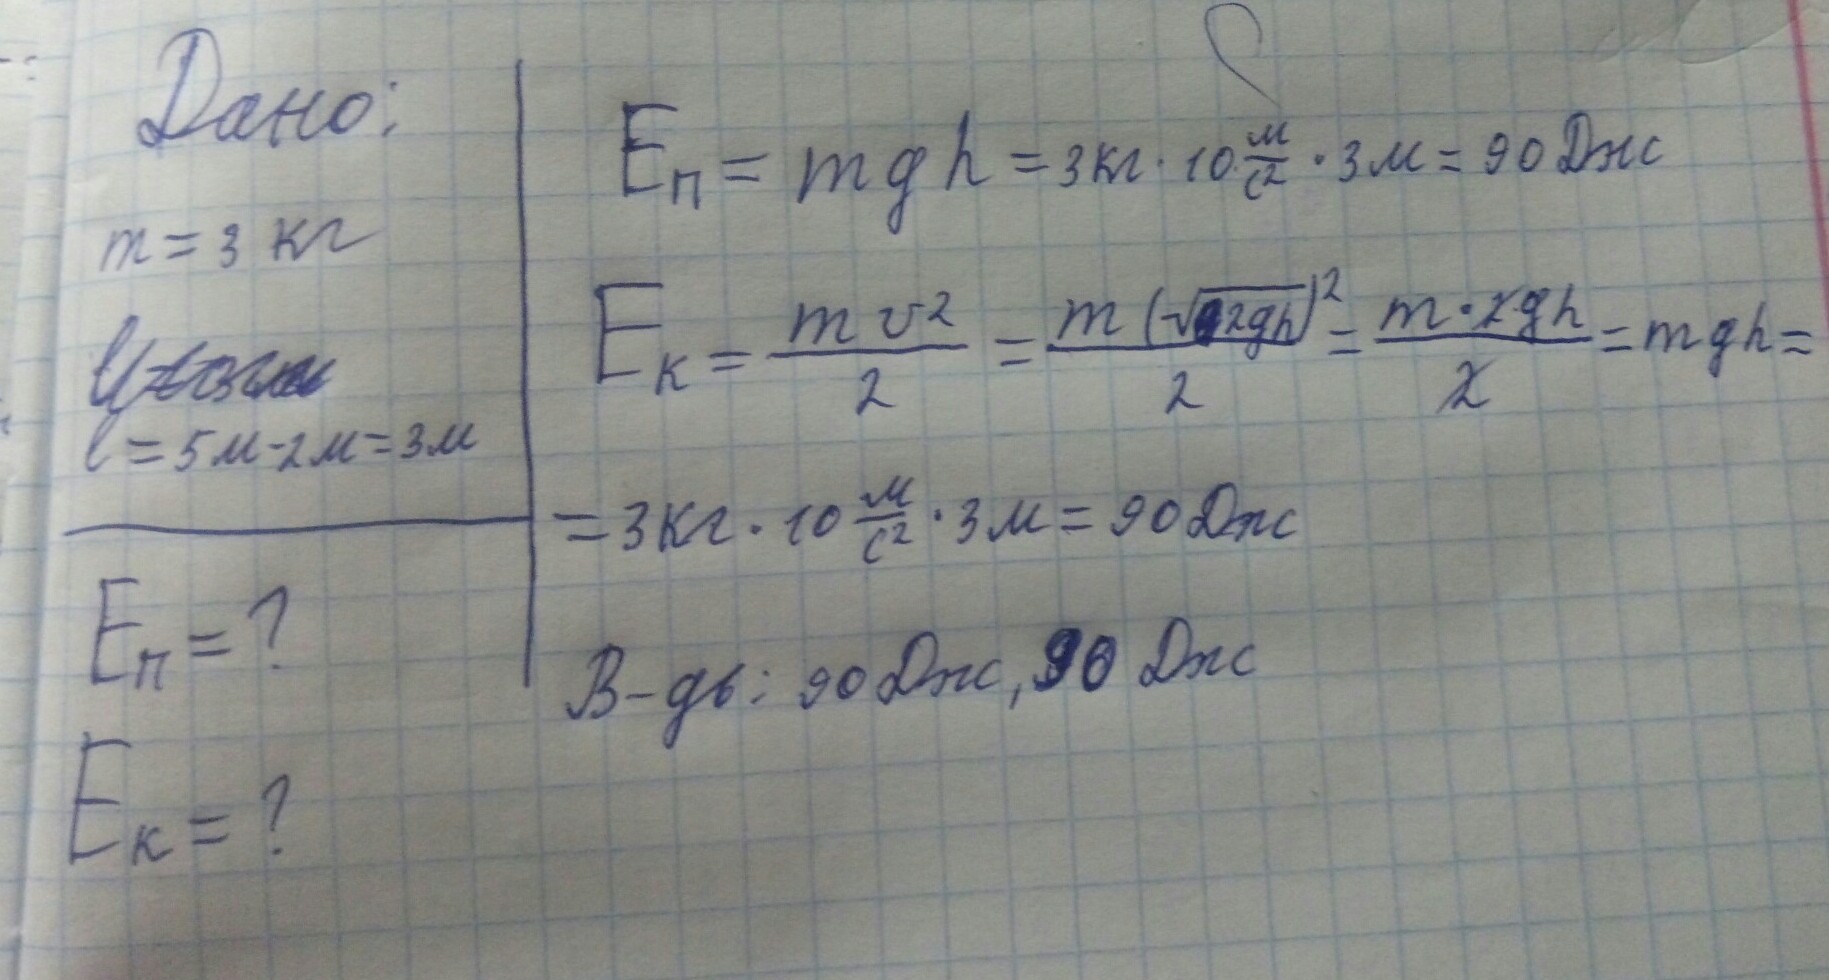 Дано:
m = 3 кг
l = 5м - 2м = 3м
Eп = ?
Eк = ?
Eп = mgh = 3кг · 10 м/с² · 3м = 90 Дж
Eк = mv²/2 = m(√2gh)²/2 = m·2gh/2 = mgh =
= 3кг · 10 м/с² · 3м = 90 Дж
В-дь: 90 Дж, 90 Дж